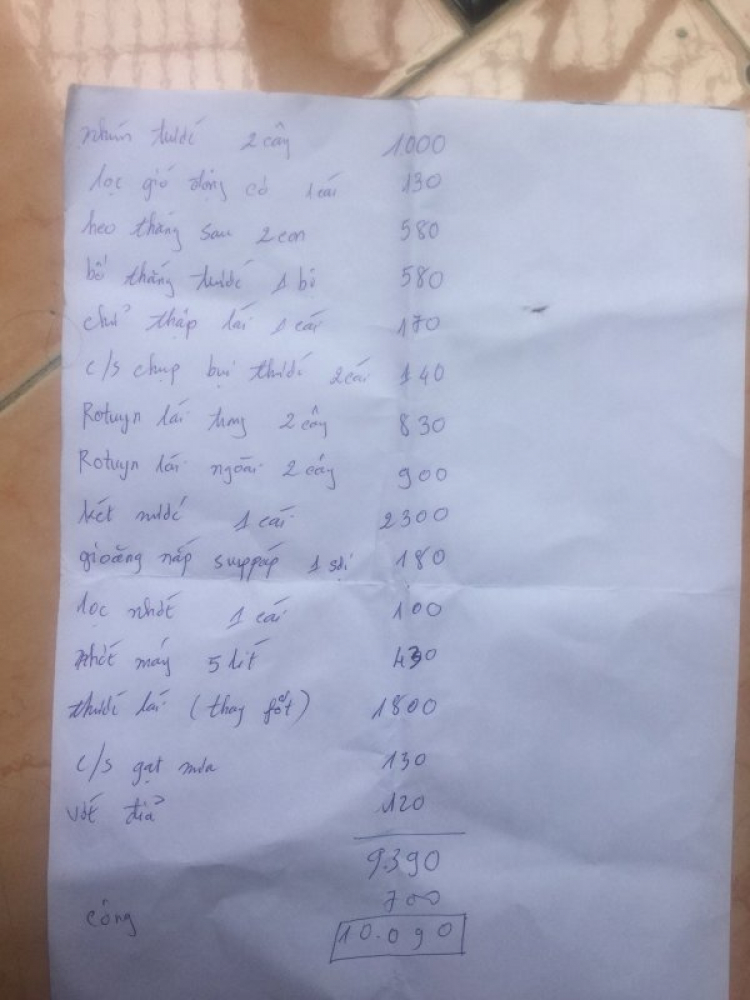 nhún trước 2 cây 1000
lọc gió động cơ 1 cái 130
heo thắng sau 2 con 580
bố thắng trước 1 bộ 580
chữ thập lái 1 cái 170
c/s chụp bụi thước 2 cái 140
Rotuyn lái trong 2 cây 830
Rotuyn lái ngoài 2 cây 900
két nước 1 cái 2300
gioăng nắp suppáp 1 sợi 180
lọc nhớt 1 cái 100
nhớt máy 5 lít 430
thước lái (thay fốt) 1800
c/s gạt mưa 130
vớt đĩa 120
9.390
700
công 10.090